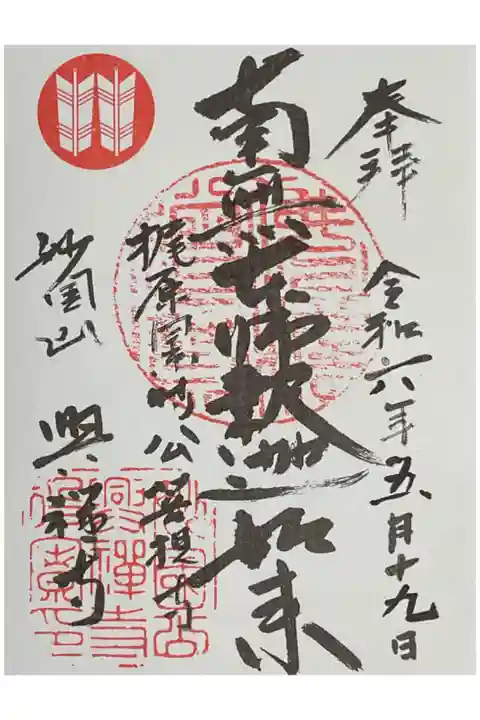 奉拝
令和六年五月十九日
南無本師釈迦如来
梶原景時公菩提寺
興禅寺